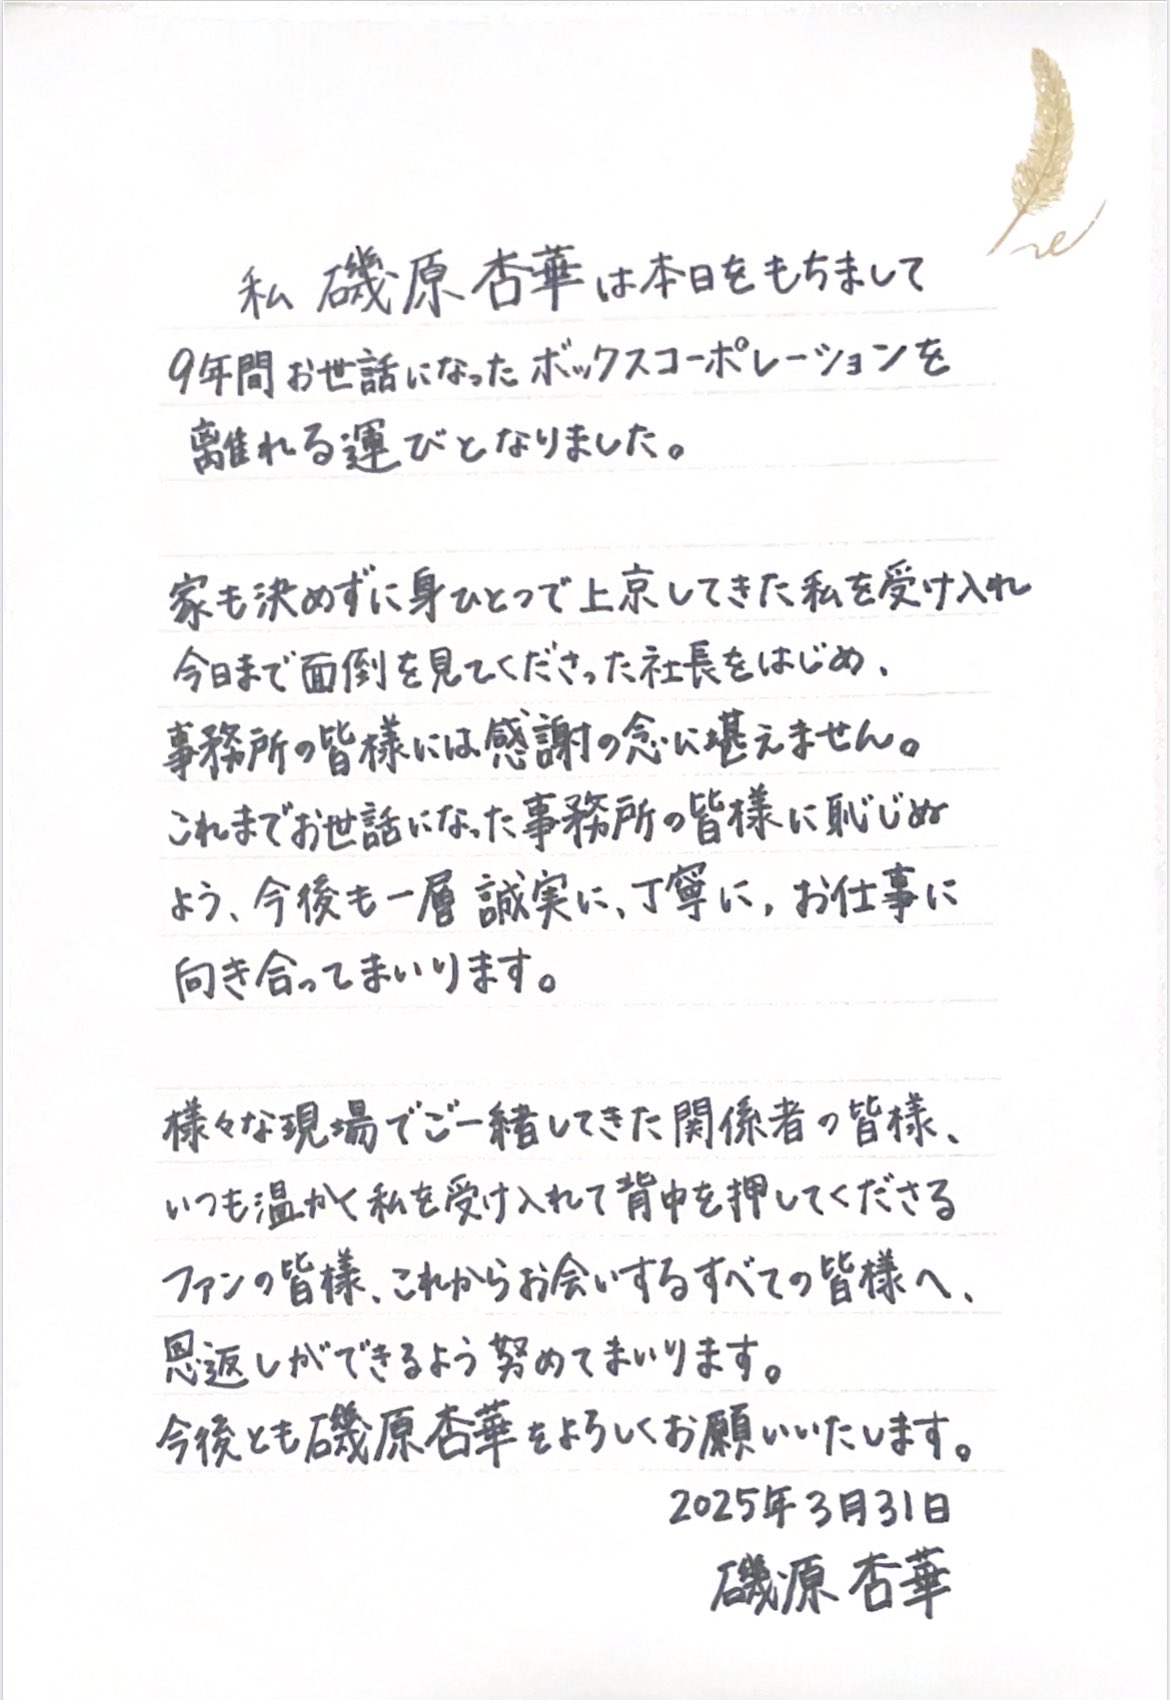 私 磯原杏華は本日をもちまして
9年間お世話になったボックスコーポレーションを
離れる運びとなりました。
家も決めずに身ひとつで上京してきた私を受け入れ
今日まで面倒を見てくださった社長をはじめ、
事務所の皆様には感謝の念に堪えません。
これまでお世話になった事務所の皆様に恥じぬ
よう、今後も一層 誠実に、丁寧に、お仕事に
向き合ってまいります。
様々な現場でご一緒してきた関係者の皆様、
いつも温かく私を受け入れて背中を押してくださる
ファンの皆様、これからお会いするすべての皆様へ、
恩返しができるよう努めてまいります。
今後とも磯原杏華をよろしくお願いいたします。
2025年3月31日
磯原 杏華